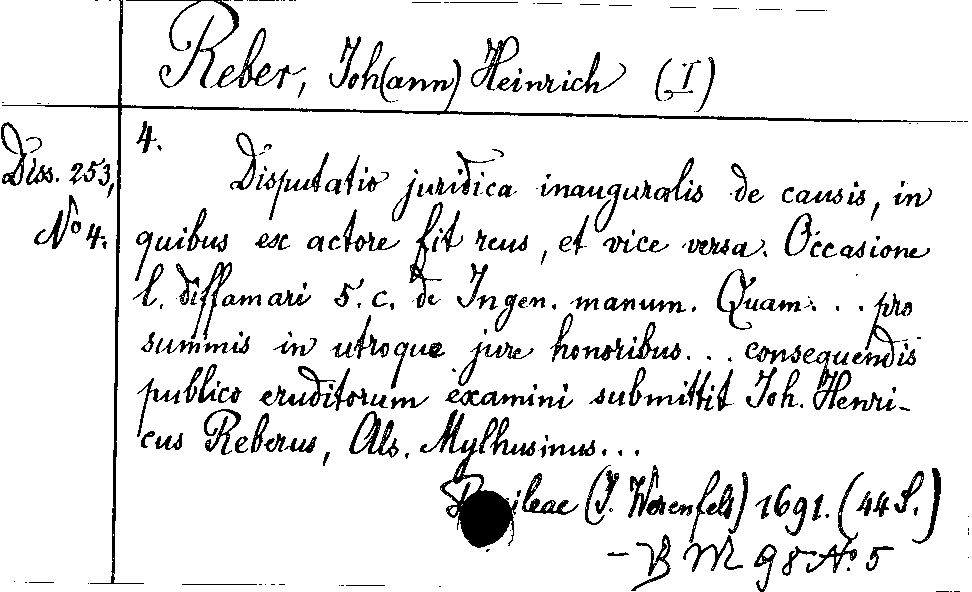 Reber, Joh(ann) Heinrich (I)
Diss. 253,
No 4.
4.
Disputatio juridica inauguralis de causis, in
quibus ex actore fit reus, et vice versa. Occasione
l. diffamari 5. c. de Ingen. manum. Quam... pro
summis in utroque jure honoribus... consequendis
publico eruditorum examini submittit Joh. Henri-
cus Reberus, Als. Mylhusinus...
(J. Werenfels) 1691. (44 S.)
- B M 98 No. 5